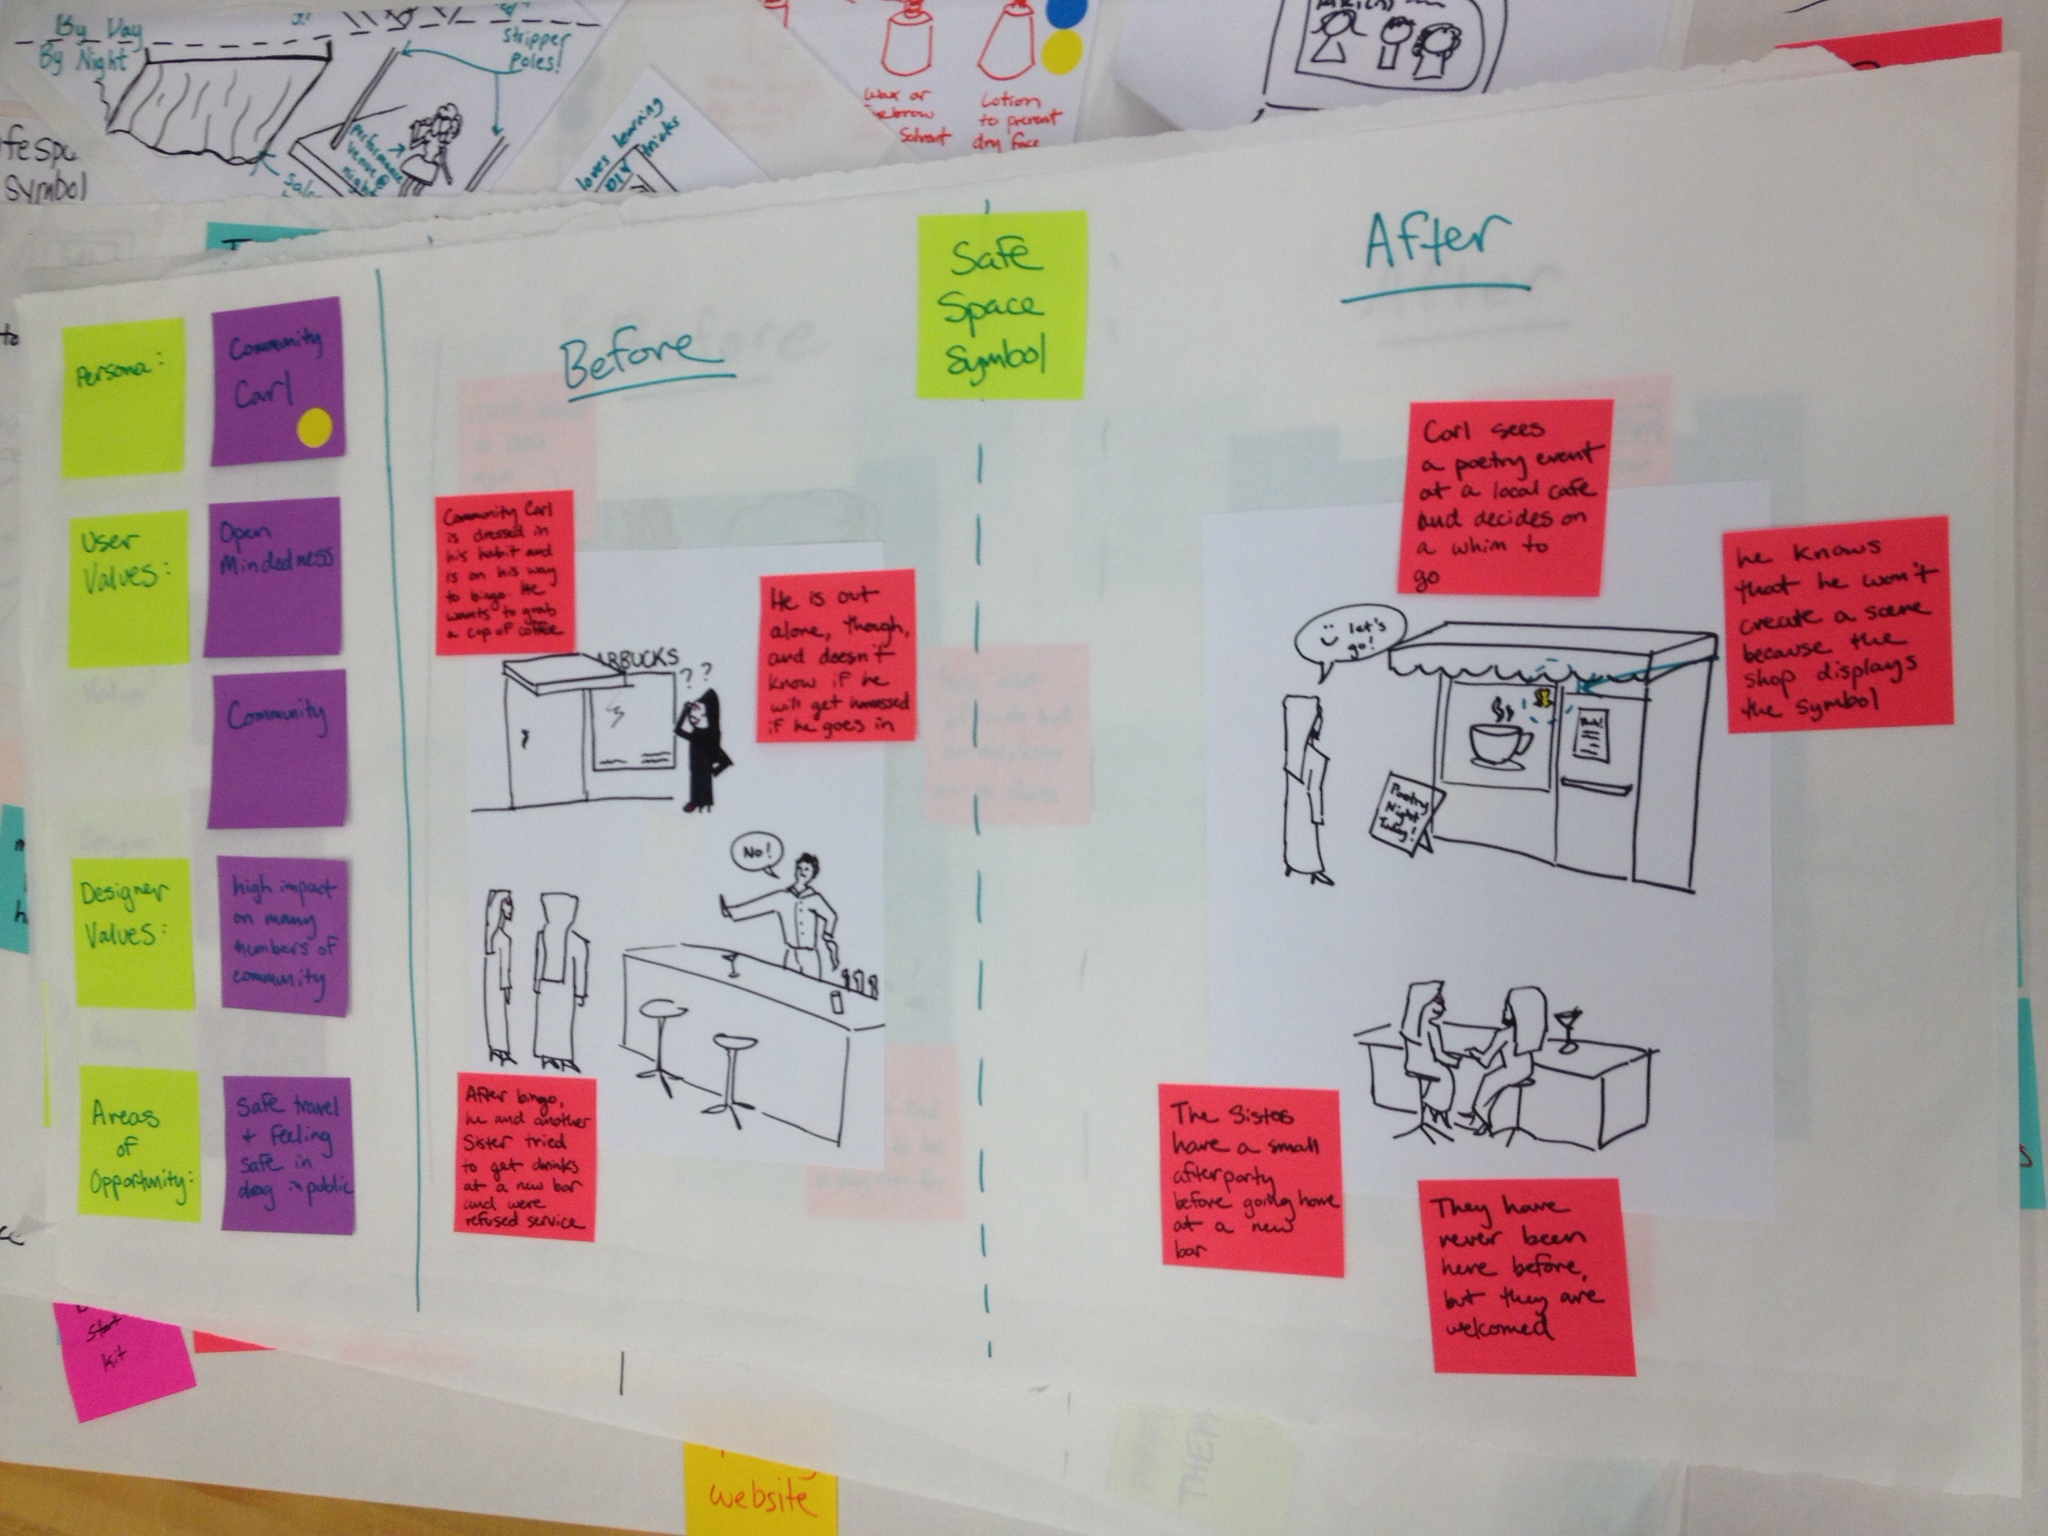 By Day
By Night
stripper
poles!
performance
venue @
night
loves learning
tricks
Wax or
Solvent
Lotion
to prevent
dry face
symbol
Safe
Space
Symbol
Before
After
Persona:
Community
Carl
User
Values:
Open
Mindedness
Community
Designer
Values:
high impact
on many
members of
community
Areas
of
Opportunity:
Safe travel
+ feeling
safe in
drag in public
Community Carl
is dressed in
his habit and
is on his way
to bingo. He
wants to grab
a cup of coffee
He is out
alone, though,
and doesn't
know if he
will get harassed
if he goes in
ARBUCKS
??
No!
After bingo,
he and another
Sister tried
to get drinks
at a new bar
and were
refused service
Carl sees
a poetry event
at a local cafe
and decides on
a whim to
go
he knows
that he won't
create a scene
because the
shop displays
the symbol
let's
go!
Poetry
Night
Today!
The Sistas
have a small
afterparty
before going home
at a new
bar
They have
never been
here before,
but they are
welcomed
Start
kit
website
THEM